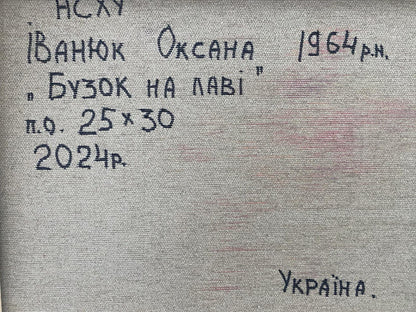 НСХУ
Іванюк Оксана 1964 р.н.
„Бузок на лаві"
п.о. 25×30
2024р.
Україна.